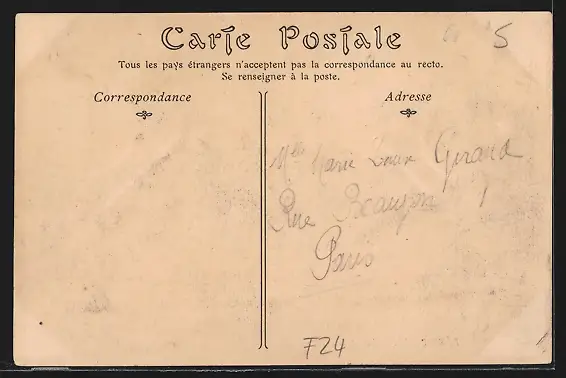 5
Carte Postale
Tous les pays étrangers n'acceptent pas la correspondance au recto.
Se renseigner à la poste.
Correspondance
Adresse
Mlle Marie Louise Giraud
Rue Beaujon 1
Paris
F24